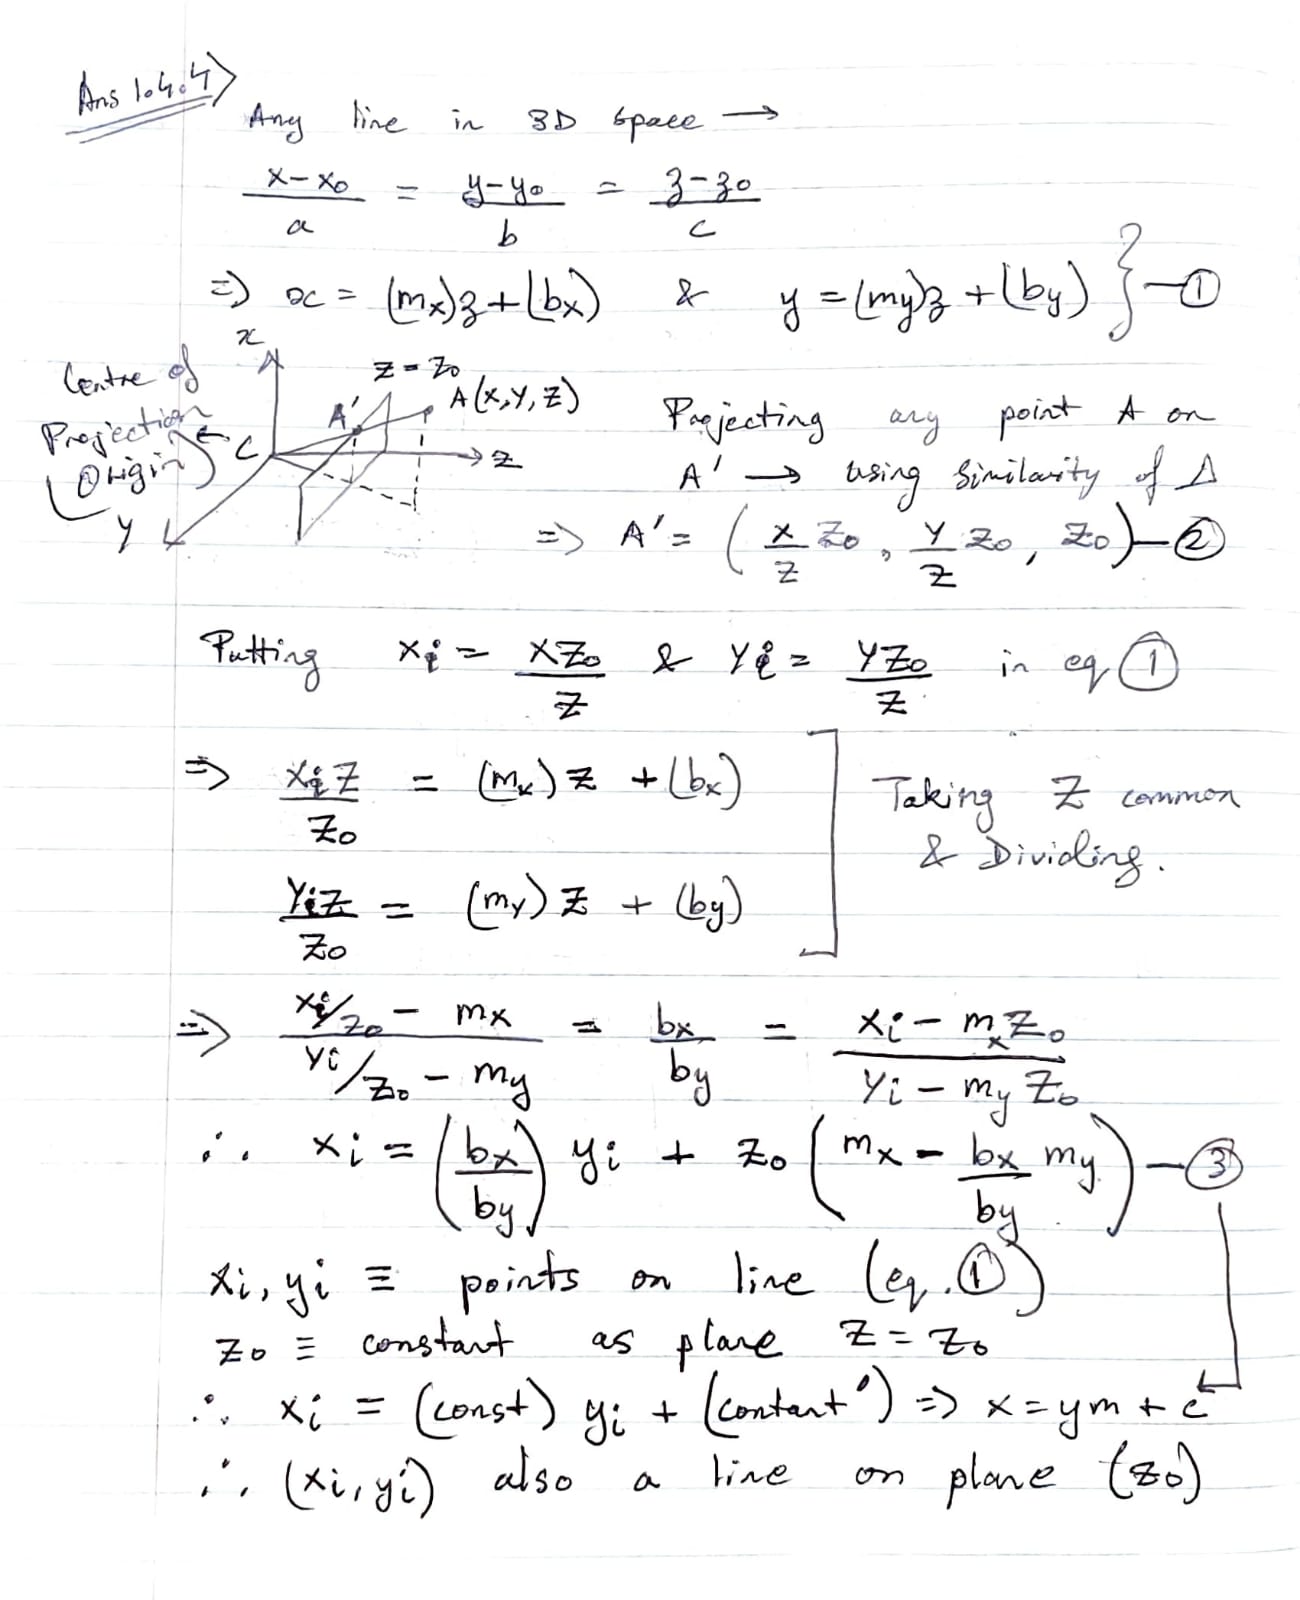 Ans 1.4.4>
Any line in 3D space →
x-x₀/a = y-y₀/b = z-z₀/c
⇒ x = (mx)z + (bx) & y = (my)z + (by) } —①
x
Centre of Projection
(Origin)
C
A'
z = z₀
A(x, y, z)
z
y
Projecting any point A on
A' → using similarity of Δ
⇒ A' = (x/z z₀, y/z z₀, z₀) —②
Putting xi = xz₀/z & yi = yz₀/z in eq ①
⇒ xiz/z₀ = (mx)z + (bx)
Taking z common
& Dividing.
yiz/z₀ = (my)z + (by)
⇒ (xi/z₀ - mx)/(yi/z₀ - my) = bx/by = (xi - mxz₀)/(yi - myz₀)
∴ xi = (bx/by) yi + z₀(mx - bx/by my) —③
xi, yi ≡ points on line (eq.①)
z₀ ≡ constant as plane z = z₀
∴ xi = (const) yi + (contant') ⇒ x = ym + c
∴ (xi, yi) also a line on plane (z₀)